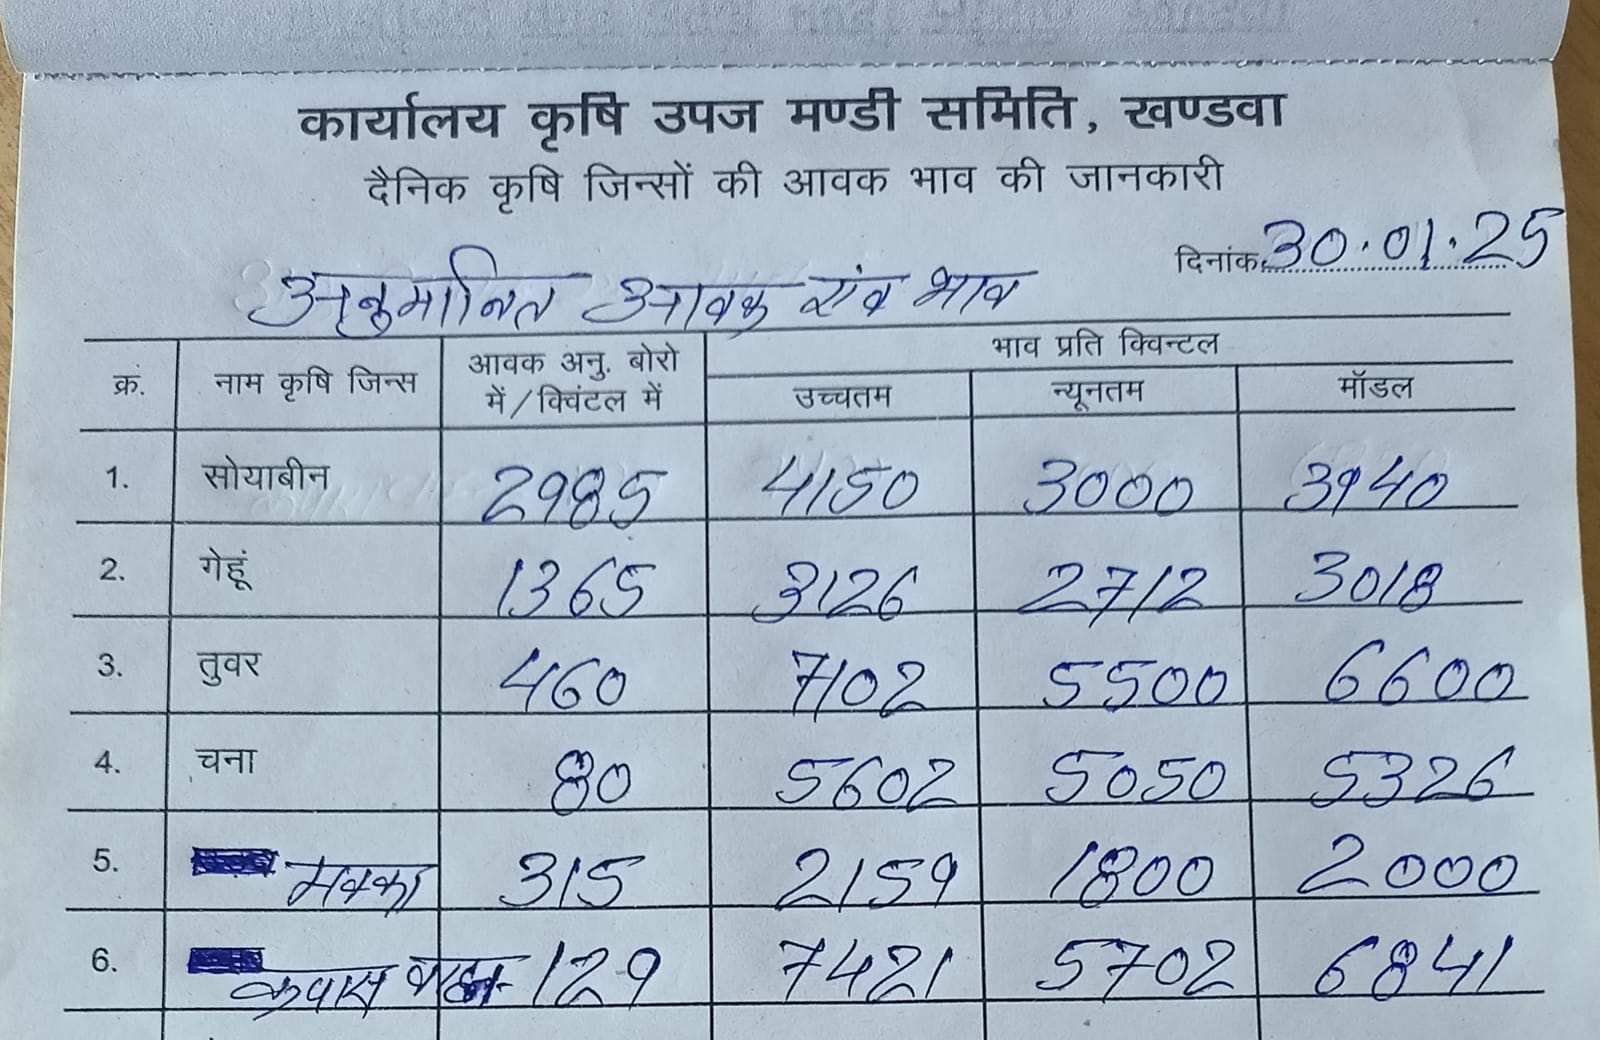 कार्यालय कृषि उपज मण्डी समिति, खण्डवा
दैनिक कृषि जिन्सों की आवक भाव की जानकारी
दिनांक 30.01.25
अनुमानित आवक एंव भाव
क्र. नाम कृषि जिन्स आवक अनु. बोरो में/क्विंटल में भाव प्रति क्विन्टल
उच्चतम न्यूनतम मॉडल
1. सोयाबीन 2985 4150 3000 3940
2. गेहूं 1365 3126 2712 3018
3. तुवर 460 7102 5500 6600
4. चना 80 5602 5050 5326
5. मक्का 315 2159 1800 2000
6. कपास 129 7421 5702 6841